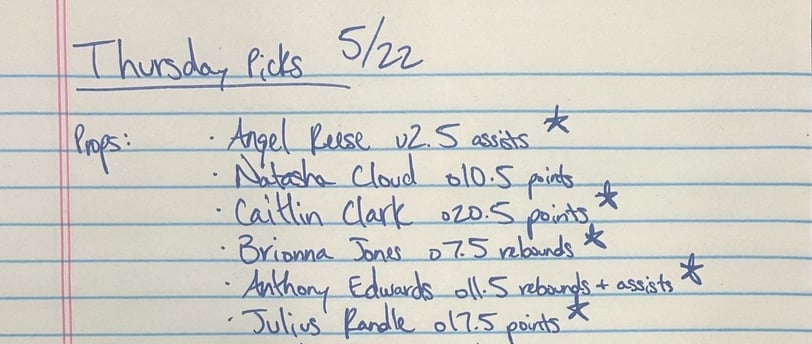 Thursday Picks 5/22
Props: · Angel Reese u2.5 assists ★
· Natasha Cloud o10.5 points
· Caitlin Clark o20.5 points ★
· Brionna Jones o7.5 rebounds ★
· Anthony Edwards o11.5 rebounds + assists ★
· Julius Randle o17.5 points ★